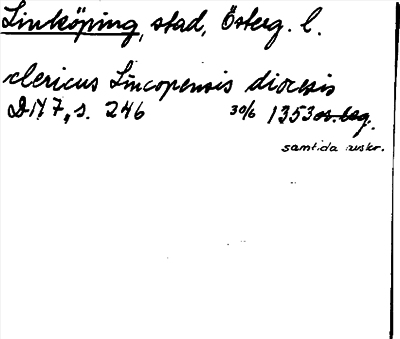 Linköping, stad, Österg. l.
clericus Lincopensis diocesis
DN 7, s. 246 30/6 1353 or. beg.
samtida avskr.